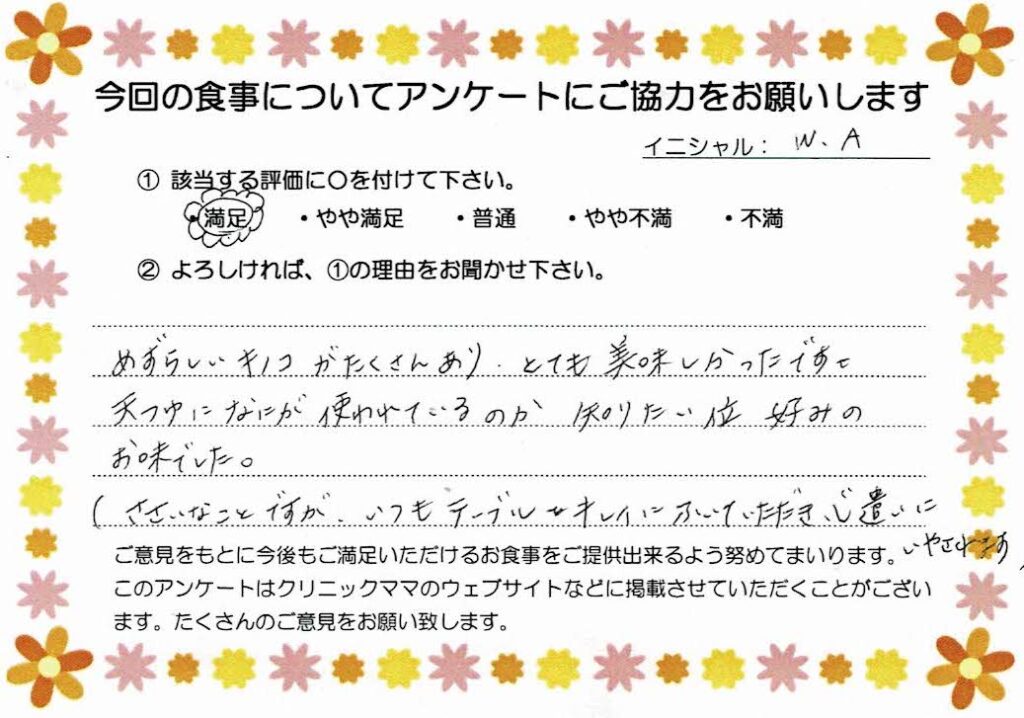 今回の食事についてアンケートにご協力をお願いします
イニシャル： W、A
① 該当する評価に〇を付けて下さい。
・満足 ・やや満足 ・普通 ・やや不満 ・不満
② よろしければ、①の理由をお聞かせ下さい。
めずらしいキノコがたくさんあり、とても美味しかったです。
天つゆになにが使われているのか 知りたい位 好みの
お味でした。
(ささいなことですが、いつもテーブルをキレイにふいていただき、心遣いに
いやされます)
ご意見をもとに今後もご満足いただけるお食事をご提供出来るよう努めてまいります。
このアンケートはクリニックママのウェブサイトなどに掲載させていただくことがござい
ます。たくさんのご意見をお願い致します。